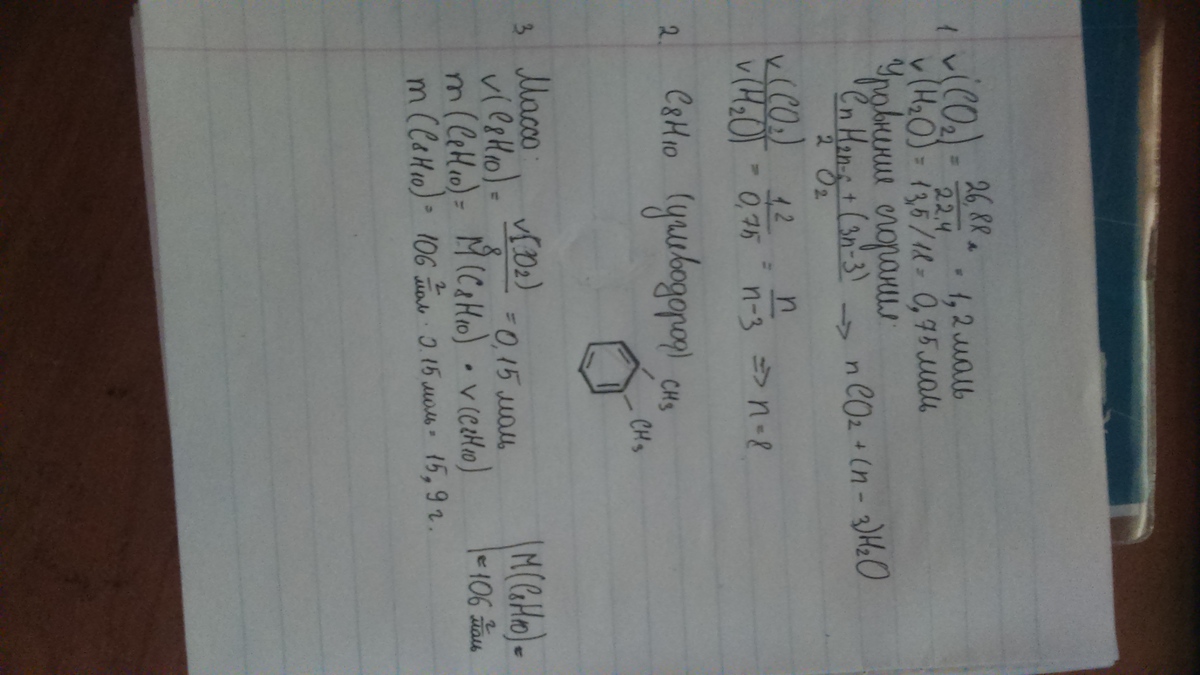 1 ν(CO₂) = 26,88 л / 22,4 = 1,2 моль
ν(H₂O) = 13,5/18 = 0,75 моль
Уравнение сгорания:
CnH2n-6 + (3n-3) / 2 O₂ → nCO₂ + (n-3)H₂O
ν(CO₂) / ν(H₂O) = 1,2 / 0,75 = n / n-3 => n=8
2. C8H10 (углеводород)
CH₃
CH₃
3 Масса:
ν(C8H10) = ν(CO₂) / 8 = 0,15 моль
M(C8H10) =
= 106 г/моль
m(C8H10) = M(C8H10) • ν(C8H10)
m(C8H10) = 106 г/моль · 0.15 моль = 15,9 г.